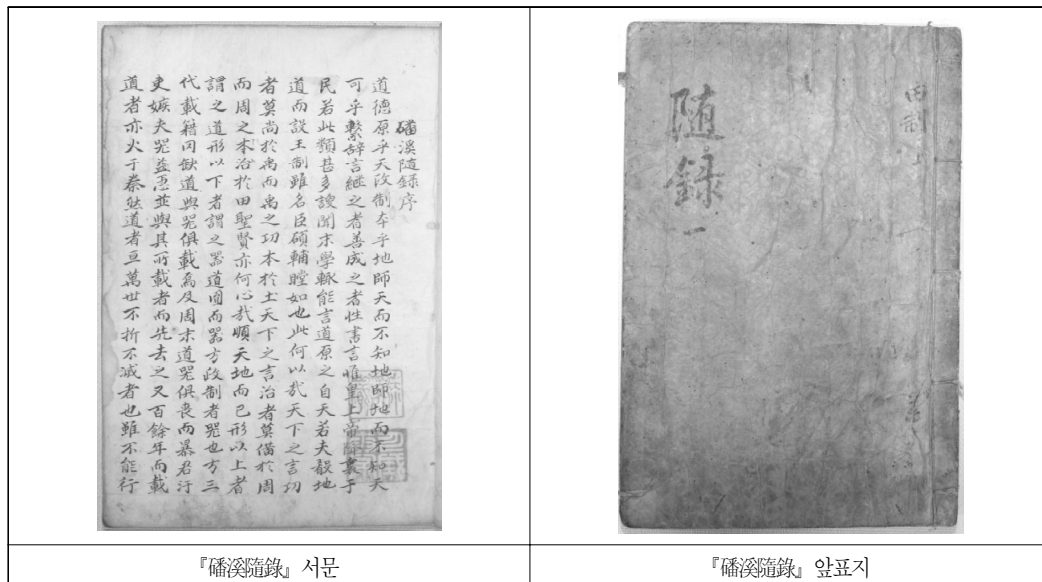 磻溪隨錄序
道德原乎天政制本乎地師天而不知地師地而不知天
可乎繫辭言繼之者善成之者性書言惟皇上帝降衷于
民若此類甚多謏聞末學輒能言道原之自天若夫殽地
道而設王制雖名臣碩輔瞠如也此何以哉天下之言功
者莫尚於禹而禹之功本於土天下之言治者莫備於周
而周之本治於田聖賢亦何心哉順天地而已形以上者
謂之道形以下者謂之器道圓而器方政制者器也方三
代載籍罔缺道與器俱載焉及周末道器俱喪而暴君汙
吏嫉夫器益惡並與其所載者而先去之又百餘年而載
道者亦火于秦然道者亘萬世不折不滅者也雖不能行
『磻溪隨錄』 서문
田制上
隨錄 一
『磻溪隨錄』 앞표지